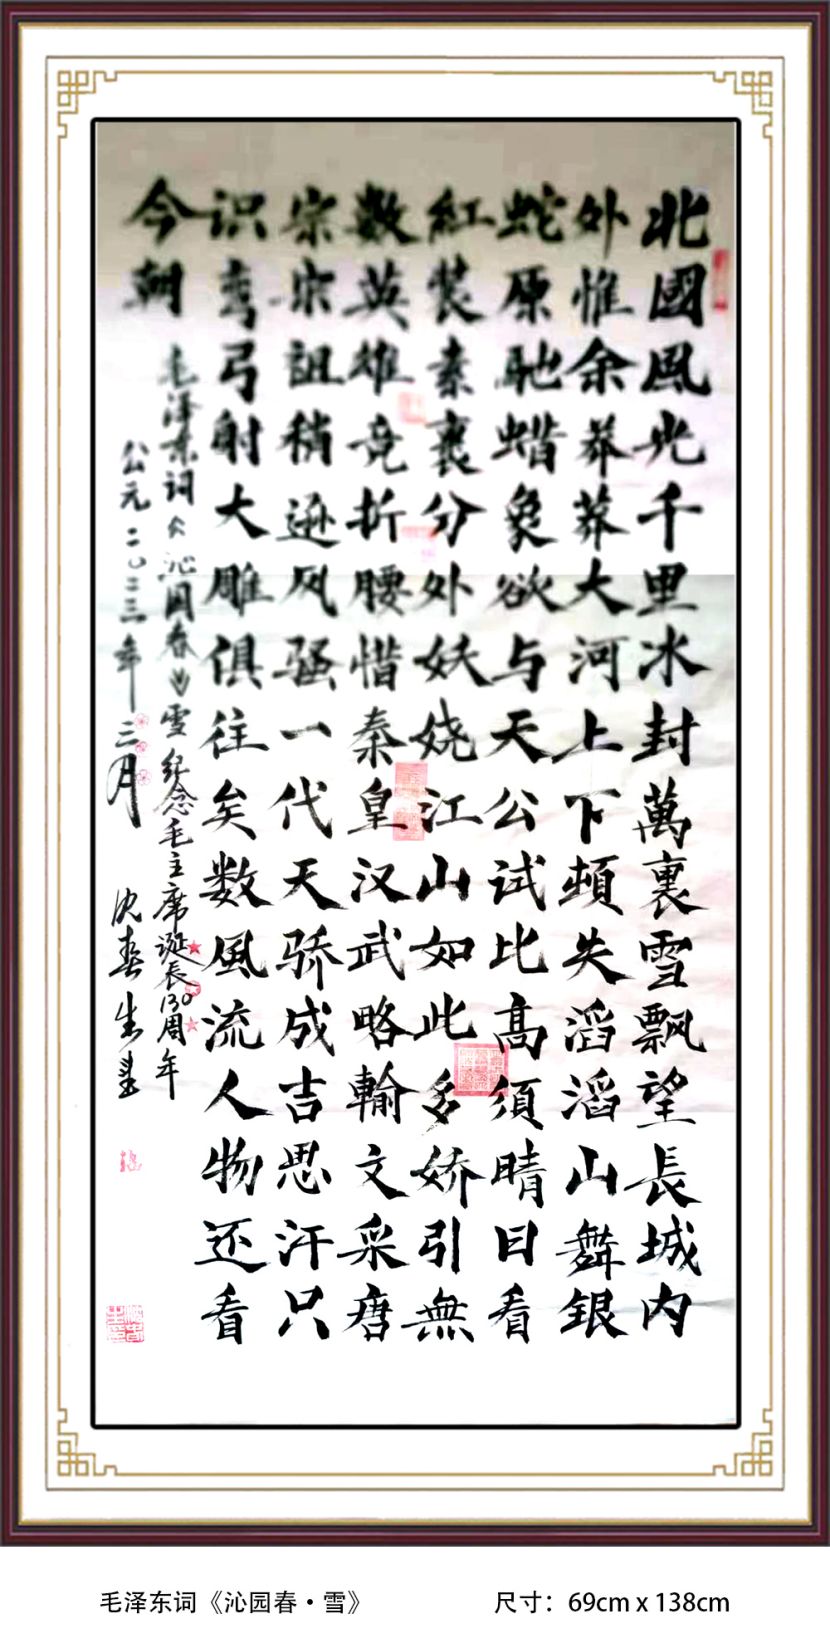 北國風光千里冰封萬裏雪飘望長城内
外惟余莽莽大河上下頓失滔滔山舞銀
蛇原馳蜡象欲与天公試比高須晴日看
紅裝素裹分外妖娆江山如此多娇引無
数英雄竞折腰惜秦皇汉武略輸文采唐
宗宋祖稍逊风骚一代天骄成吉思汗只
识弯弓射大雕俱往矣数風流人物还看
今朝
毛泽东词《沁园春》雪 纪念毛主席诞辰130周年
公元二〇二三年三月 沈春生書
毛泽东词《沁园春·雪》 尺寸：69cm x 138cm